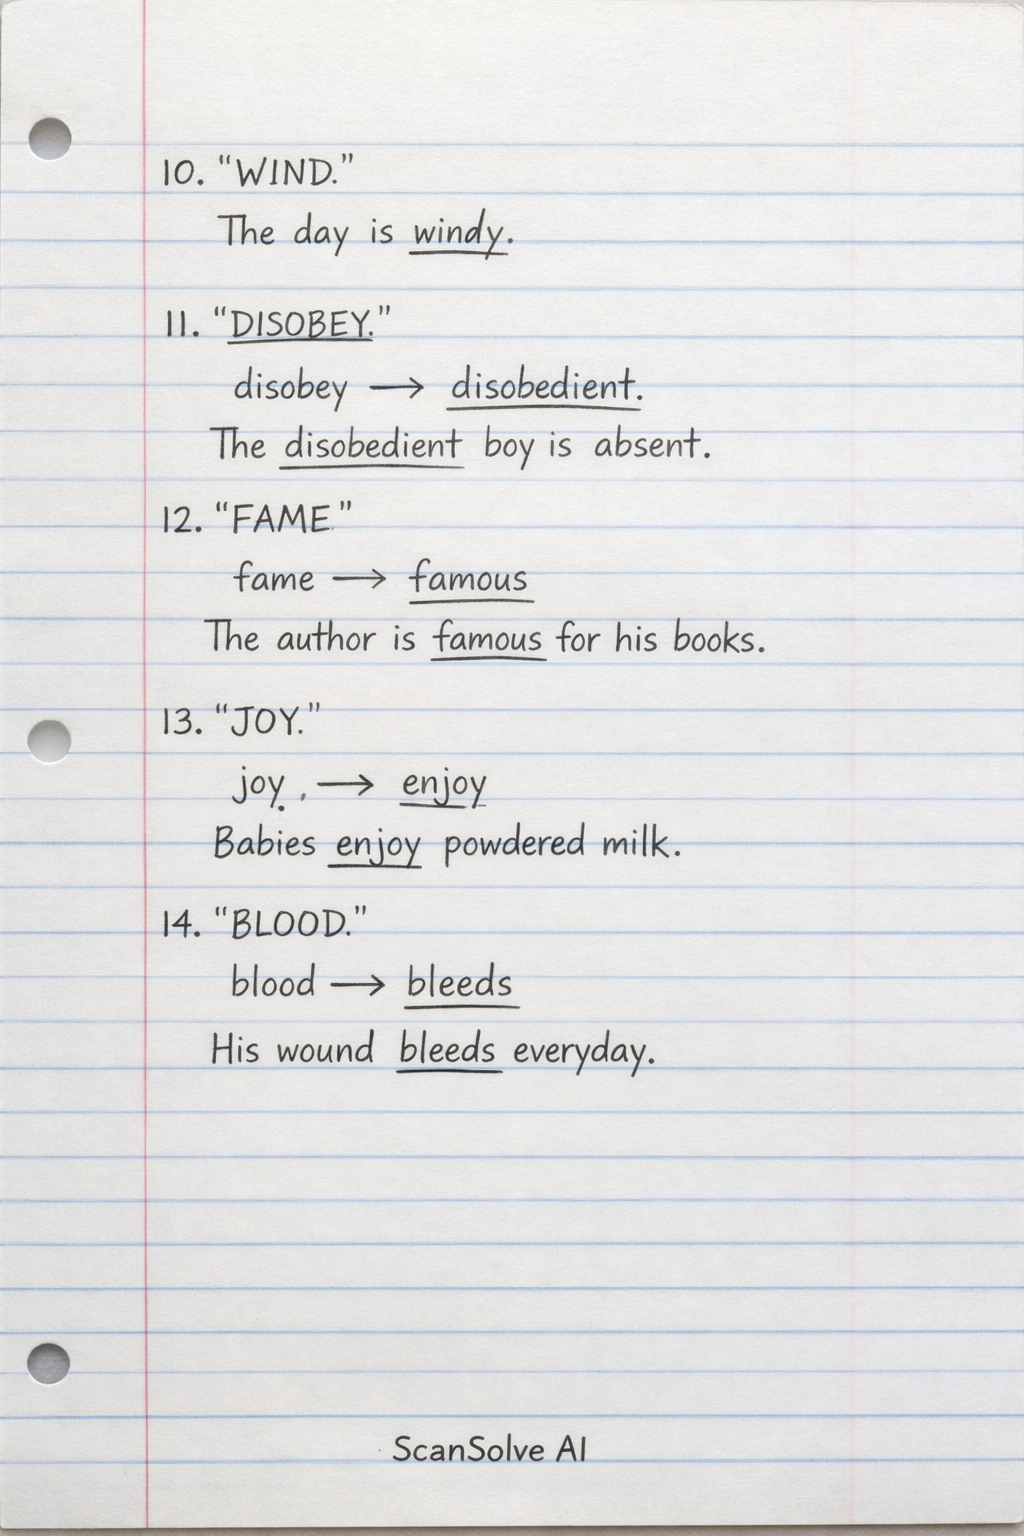 10. "WIND."
The day is windy.
11. "DISOBEY."
disobey → disobedient.
The disobedient boy is absent.
12. "FAME."
fame → famous
The author is famous for his books.
13. "JOY."
joy. → enjoy
Babies enjoy powdered milk.
14. "BLOOD."
blood → bleeds
His wound bleeds everyday.
ScanSolve AI